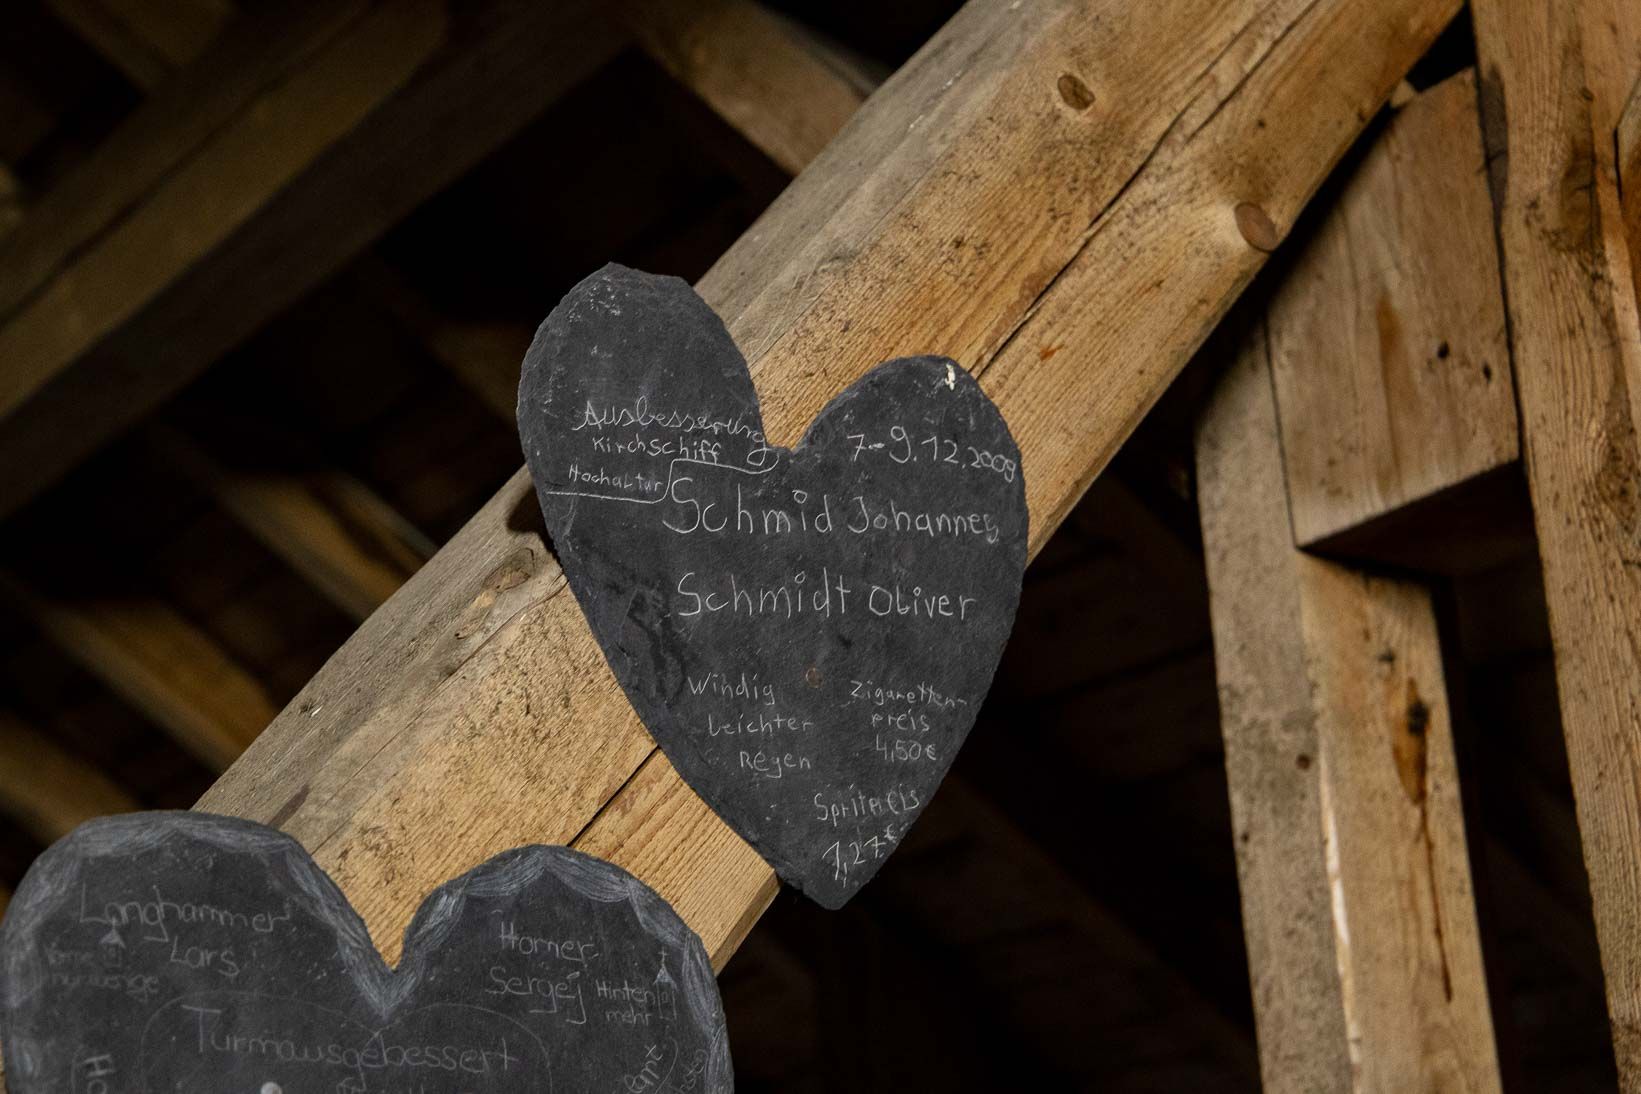 Ausbesserung
Kirchschiff
Hochaltar
7-9.12.2009
Schmid Johannes
Schmidt Oliver
Windig
Leichter
Regen
Zigaretten-
preis
4,50€
Spritpreis
1,27€
Langhammer
Lars
Horner
Sergej
Hinten
mehr
Turmausgebessert